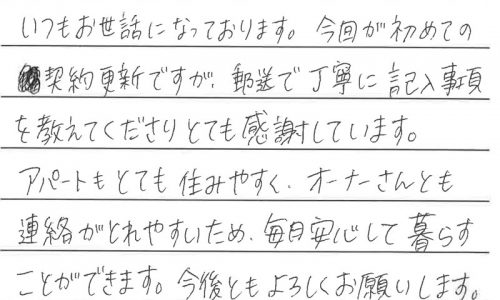 いつもお世話になっております。今回が初めての
契約更新ですが、郵送で丁寧に記入事項
を教えてくださりとても感謝しています。
アパートもとても住みやすく、オーナーさんとも
連絡がとれやすいため、毎日安心して暮らす
ことができます。今後ともよろしくお願いします。